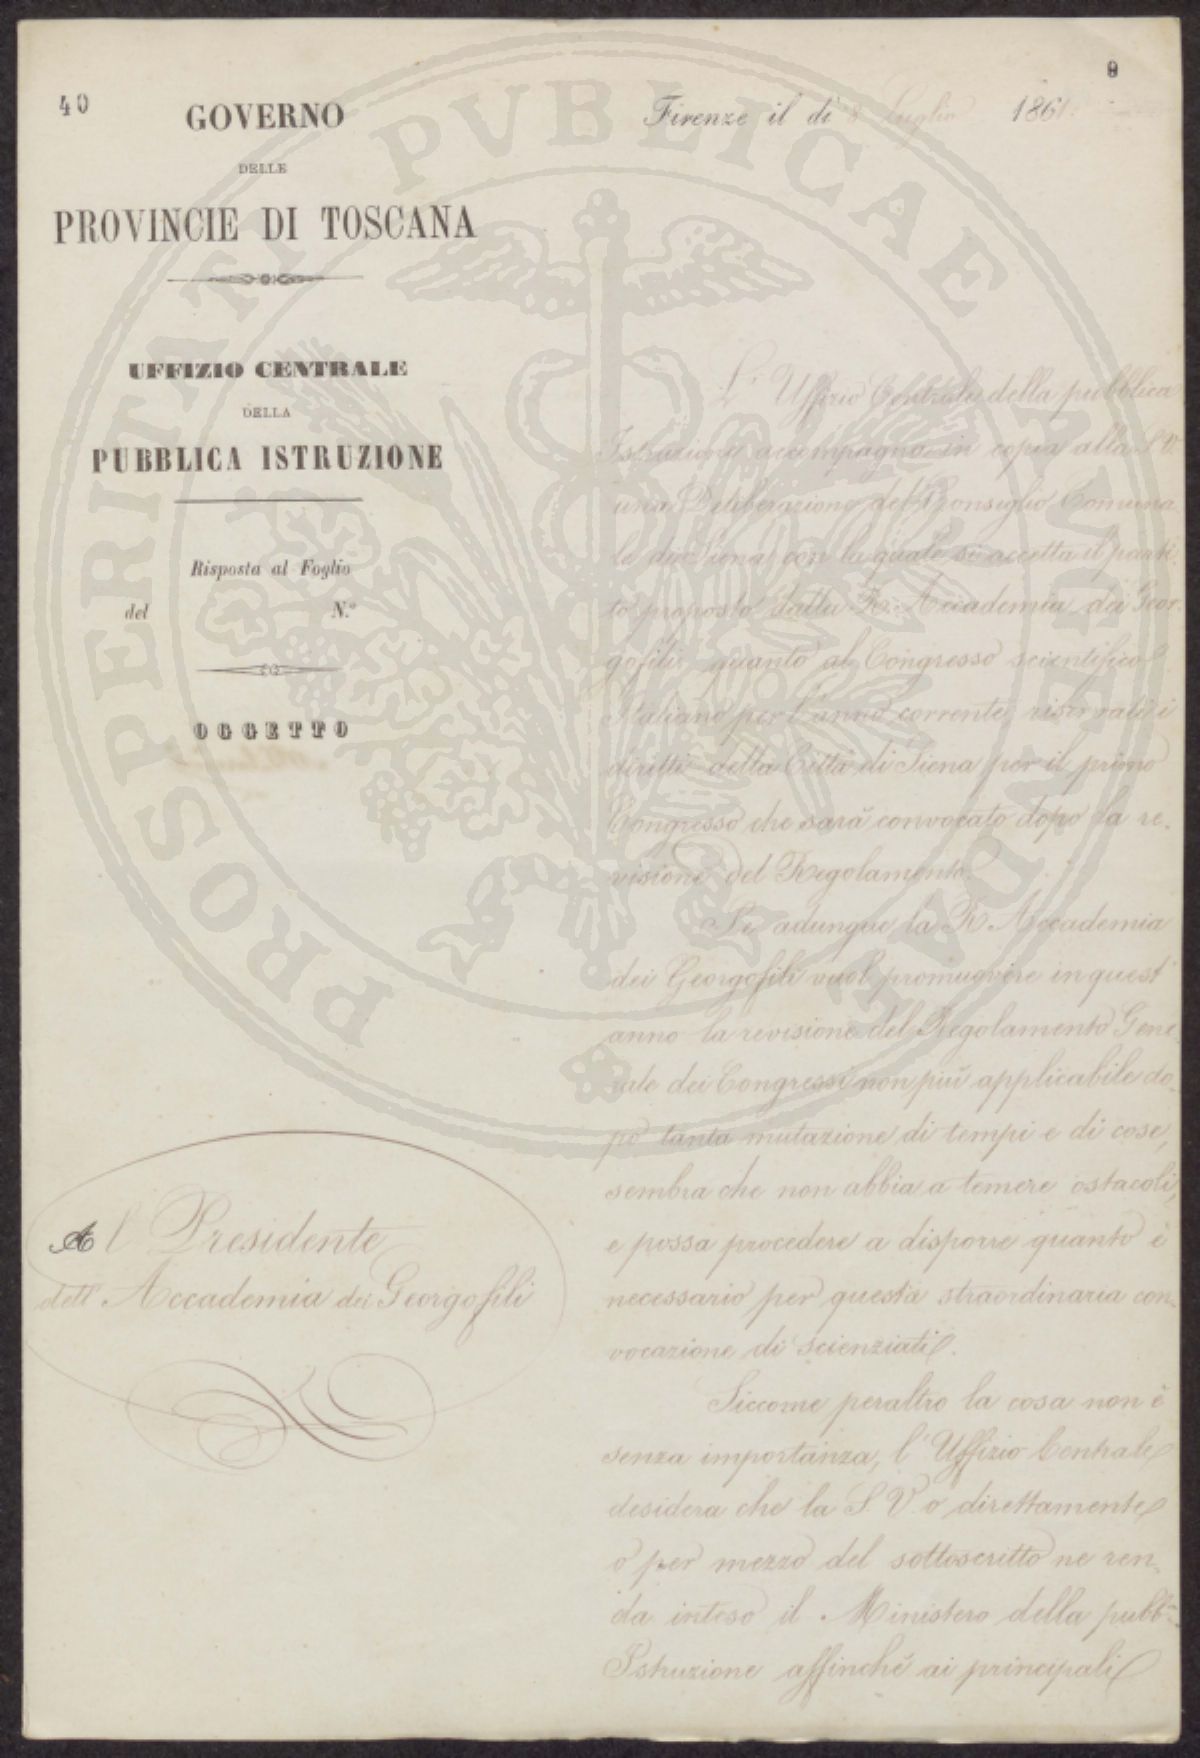 40
GOVERNO
DELLE
PROVINCIE DI TOSCANA
UFFIZIO CENTRALE
DELLA
PUBBLICA ISTRUZIONE
Risposta al Foglio
del N.º
OGGETTO
Al Presidente
dell' Accademia dei Georgofili
Firenze il dì 8 Luglio 1861.
L' Uffizio Centrale della pubblica
Istruzione accompagna in copia alla S. V.
una Deliberazione del Consiglio Comuna
le di Siena con la quale si accetta il parti
to proposto dalla R. Accademia dei Geor
gofili quanto al Congresso scientifico
Italiano per l'anno corrente, riservati i
diritti della Città di Siena per il primo
Congresso che sarà convocato dopo la re-
visione del Regolamento.
Se adunque la R. Accademia
dei Georgofili vuol promuovere in quest'
anno la revisione del Regolamento Gene
rale dei Congressi non più applicabile do-
po tanta mutazione di tempi e di cose,
sembra che non abbia a temere ostacoli,
e possa procedere a disporre quanto è
necessario per questa straordinaria con-
vocazione di scienziati.
Siccome peraltro la cosa non è
senza importanza, l' Uffizio Centrale
desidera che la S. V. o direttamente
o per mezzo del sottoscritto ne ren-
da inteso il Ministero della pubb.
Istruzione affinchè ai principali
PROSPERITATI PUBLICAE AUGENDAE